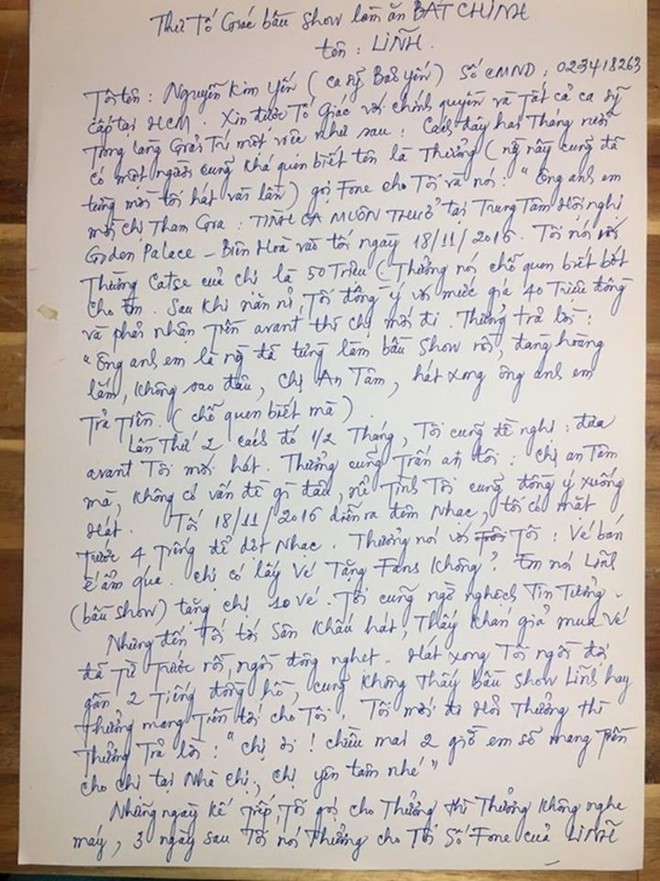 Thư Tố Giác bầu show làm ăn BẤT CHÍNH
tên : LINH .
Tôi tên : Nguyễn Kim Yến ( ca sỹ Bảo Yến ) Số CMND : 023418263
cấp tại HCM . Xin được Tố Giác với chính quyền và Tất cả ca sỹ
Trong làng Giải Trí một việc như sau : Cách đây hai Tháng rưỡi
có một người cũng khá quen biết tên là Thưởng ( này cũng đã
từng mời tôi hát vài lần ) gọi Fone cho Tôi và nói : " Ông anh em
mời chị Tham Gia : TÌNH CA MUÔN THUỞ tại Trung Tâm Hội nghị
Golden Palace - Biên Hoà vào tối ngày 18/11/2016 . Tôi nói với
Thưởng Catse của chị là 50 Triệu ( Thưởng nói chỗ quen biết bớt
cho em . Sau khi năn nỉ , Tôi đồng ý với mức giá 40 Triệu đồng
và phải nhận Tiền avant thì chị mới đi . Thưởng trả lời :
" Ông anh em là đã từng làm bầu show rồi , đàng hoàng
lắm , không sao đâu , chị An Tâm , hát xong ông anh em
Trả Tiền . ( chỗ quen biết mà )
Lần Thứ 2 cách đó 1/2 Tháng , Tôi cũng đề nghị : đưa
avant Tôi mới hát . Thưởng cũng Trấn an tôi : chị an Tâm
mà , không có vấn đề gì đâu , nể Tình Tôi cũng đồng ý xuống
hát . Tối 18/11/2016 diễn ra đêm Nhạc , tôi có mặt
trước 4 Tiếng để dợt Nhạc . Thưởng nói với Tôi : Vé bán
ế ẩm quá . Chị có lấy Vé Tặng Fans không ? Em nói Linh
( bầu show ) tặng chị 10 vé . Tôi cũng ngờ nghệch Tin Tưởng .
Nhưng đến Tối tới Sân khấu hát , Thấy khán giả mua vé
đã Từ trước rồi , ngồi đông nghẹt . Hát xong Tôi ngồi đợi
gần 2 Tiếng đồng hồ , cũng không Thấy bầu show Linh hay
Thưởng mang Tiền tới cho Tôi . Tôi mới đi Hỏi Thưởng thì
Thưởng Trả lời : " Chị ơi ! chiều mai 2 giờ em sẽ mang Tiền
cho chị tại Nhà chị , chị yên tâm nhé "
Những ngày kế Tiếp , Tôi gọi cho Thưởng thì Thưởng không nghe
máy , 3 ngày sau Tôi nói Thưởng cho Tôi Số Fone của LINH